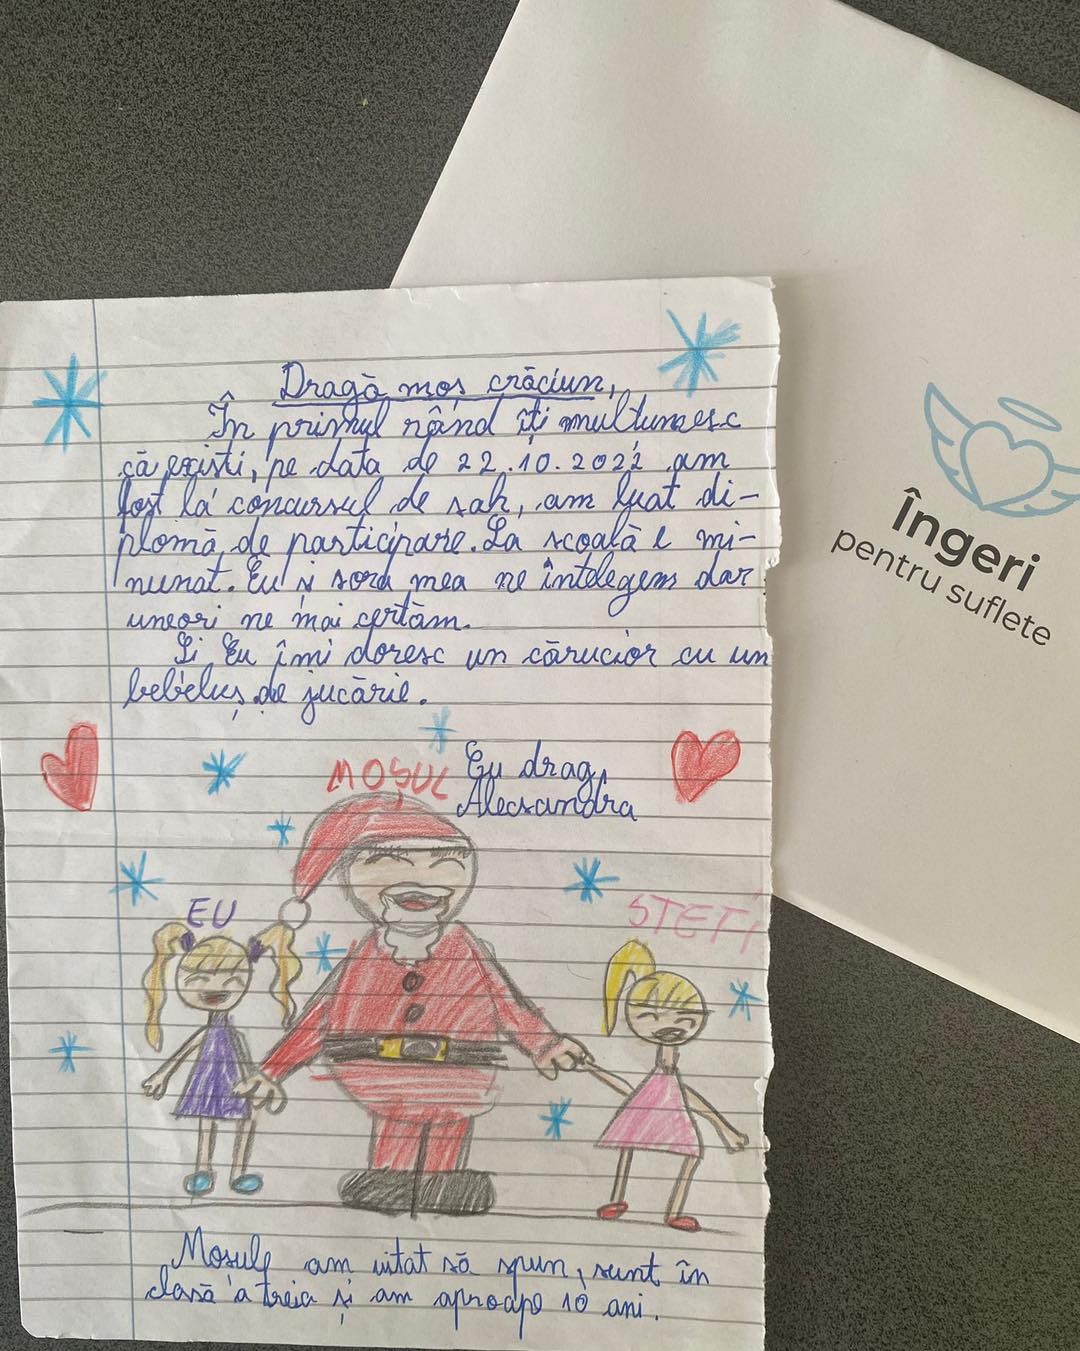 Dragă moș crăciun,
În primul rând îți multumesc
că existi, pe data de 22.10.2022 am
fost la concursul de sah, am luat di-
plomă de participare. La scoală e mi-
nunat. Eu și sora mea ne întelegem dar
uneori ne mai certăm.
Și Eu îmi doresc un cărucior cu un
bebeluș de jucărie.
Cu drag,
Alecsandra
MOȘUL
EU
STEFI
Mosule am uitat să spun, sunt în
clasă a treia și am aproape 10 ani.
Îngeri
pentru suflete